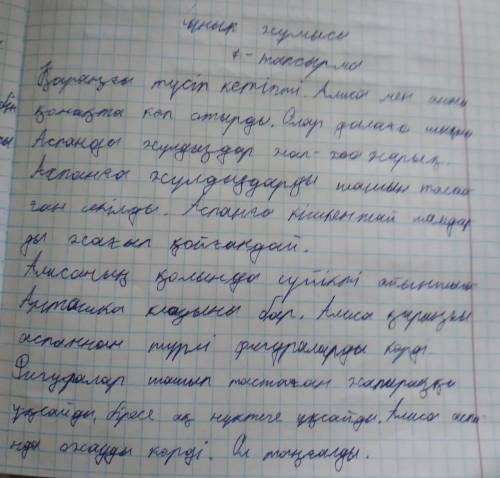 Сынып жұмысы
1-тапсырма
Қараңғы түсіп кетіпті. Алиса мен анна
қонақта көп отырды. Олар далаға шықты
Аспанда жұлдыздар жап-жарық.
Аспанға жұлдыздарды шашып таста
ған секілді. Аспанға кішкентай шамдар
ды жағып қойғандай.
Алисаның қолында сүйікті ойыншығы
Антошка клоуны бар. Алиса қараңғы
аспаннан түрлі фигураларды көрді.
Фигуралар шашып тастаған жапыраққа
ұқсайды, біресе ақ нүктеге ұқсайды. Алиса аспа
нда ожауды көрді. Ол таңғалды.